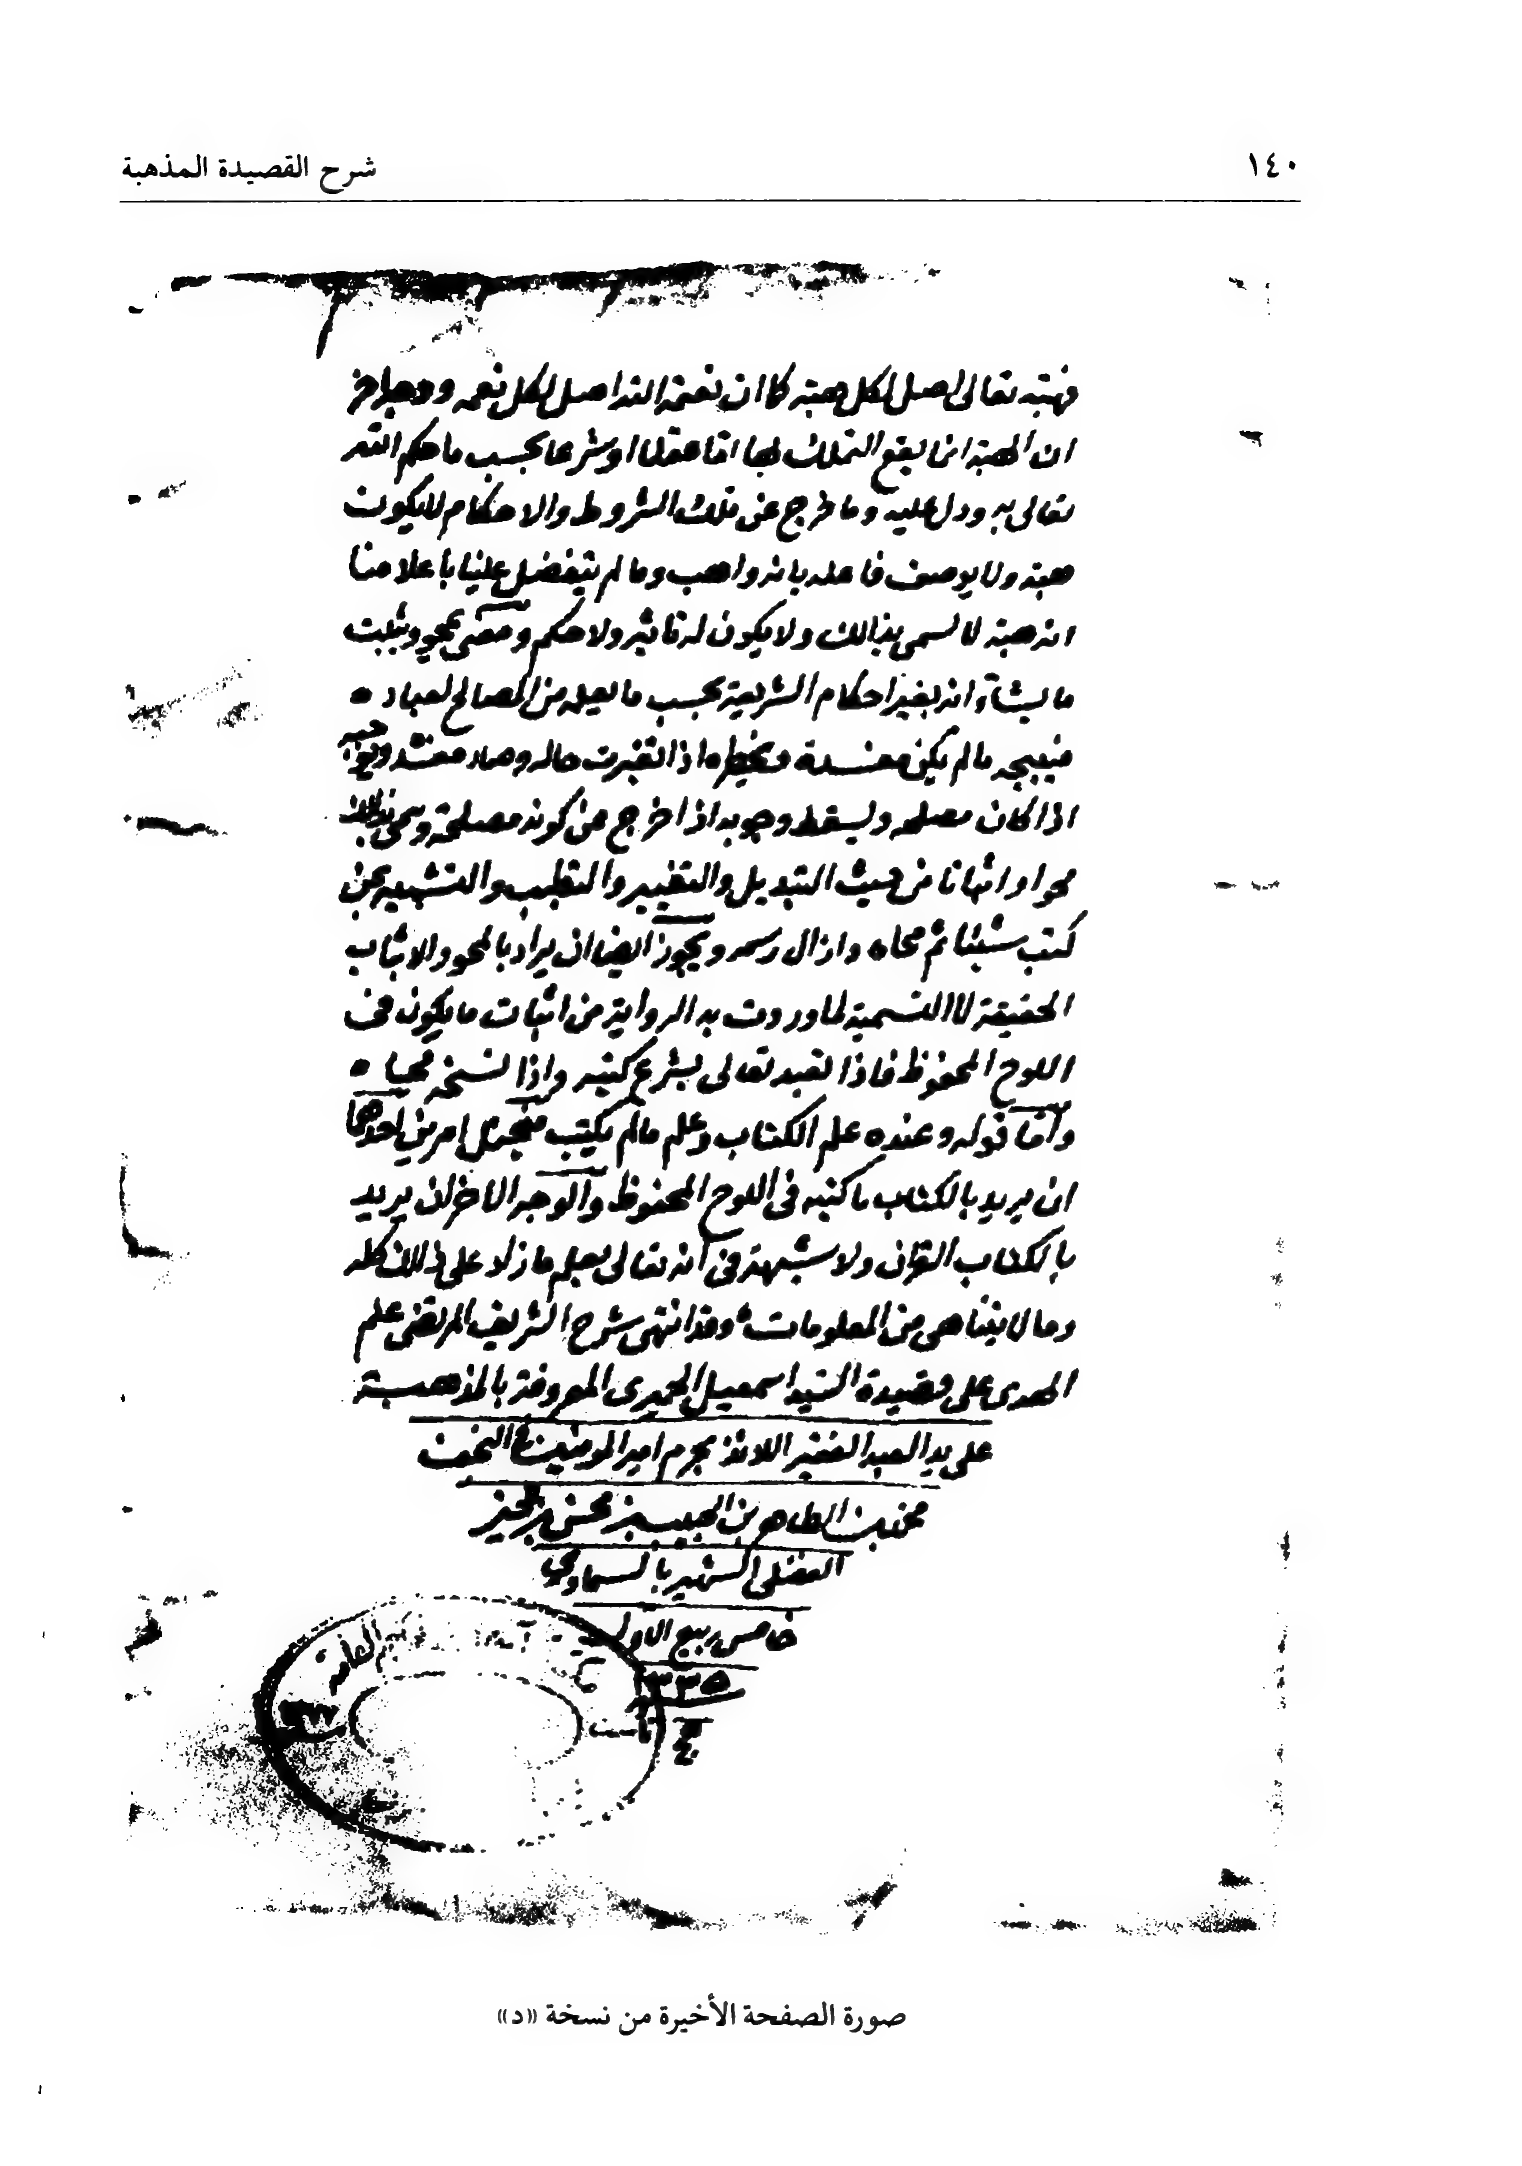 ١٤٠
شرح القصيدة المذهبة
فهبته تعالى اصل لكل هبته كما ان نعمة الله اصل لكل نعمه ووجه اخر
ان الهبة انما يقع التملك لها اما عقلا او شرعا بحسب ما حكم الله
تعالى به ودل عليه وما خرج عن تلك الشروط والاحكام لا يكون
هبته ولا يوصف فاعله بانه واهب وما لم يتفضل علينا باعلامنا
انه هبة لا تسمى بذلك ولا يكون له تاثير ولا حكم ومعنى يمحو ويثبت
ما يشآء انه يغير احكام الشريعة بحسب ما يعلمه من المصالح لعباده
فيبيحه ما لم يكن مفسدة ويحظره اذا تغيرت حاله وصار مفسدة ويوجبه
اذا كان مصلحه ويسقط وجوبه اذا خرج من كونه مصلحة وسمى ذلك
محوا واثباتا من حيث التبديل والتغيير والتقليب والتشبيه بمن
كتب شيئا ثم محاه وازال رسمه ويجوز ايضا ان يراد بالمحو والاثبات
الحقيقة لا التسمية لما وردت به الرواية من اثبات ما يكون فى
اللوح المحفوظ فاذا تعبد تعالى بشرع كتبه واذا نسخه محياه
وأما قوله وعنده علم الكتاب وعلم ما لم يكتب فيحتمل امرين احدهما
ان يريد بالكتاب ما كتبه فى اللوح المحفوظ والوجه الاخر ان يريد
بالكتاب القران ولا شبهة فى انه تعالى يعلم ما زاد على ذلك كله
وما لا يتناهى من المعلومات وقد انتهى شرح الشريف المرتضى علم
الهدى على قصيدة السيد اسمعيل الحميرى المعروفة بالمذهبة
على يد العبد الفقير اللائذ بحرم امير المومنين فى النجف
محمد بن الطاهر بن الحبيب بن محسن
الفضلى الشهير بالسماوى
خامس ربيع الاول
١٣٣٥
صورة الصفحة الأخيرة من نسخة «د»